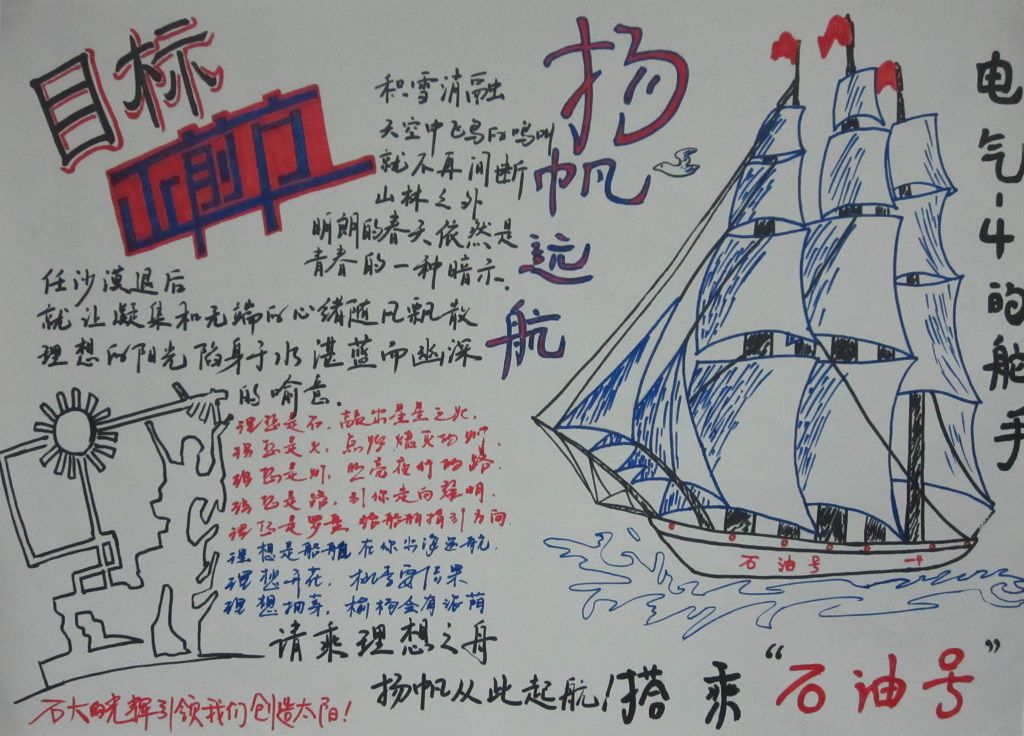 目标
正前方
积雪消融出
天空中飞鸟的鸣叫
就不再间断
山林之外
明朗的春天依然是
青春的一种暗示.
任沙漠退后
就让凝集和无端的心绪随风飘散
理想的阳光陷身于水湛蓝而幽深
的喻意.
理想是石,敲出星星之火.
理想是火,点燃熄灭的灯.
理想是灯,照亮夜行的路.
理想是路,引你走向黎明.
理想是罗盘,给船舶指引方向.
理想是船舶,在你出海远航.
理想开花,桃李要结果
理想抽芽,榆杨会有浓荫
请乘理想之舟
扬帆从此起航!搭乘“石油号”
石大的光辉引领我们创造太阳!
扬帆远航
电气-4的舵手
石油号 一号